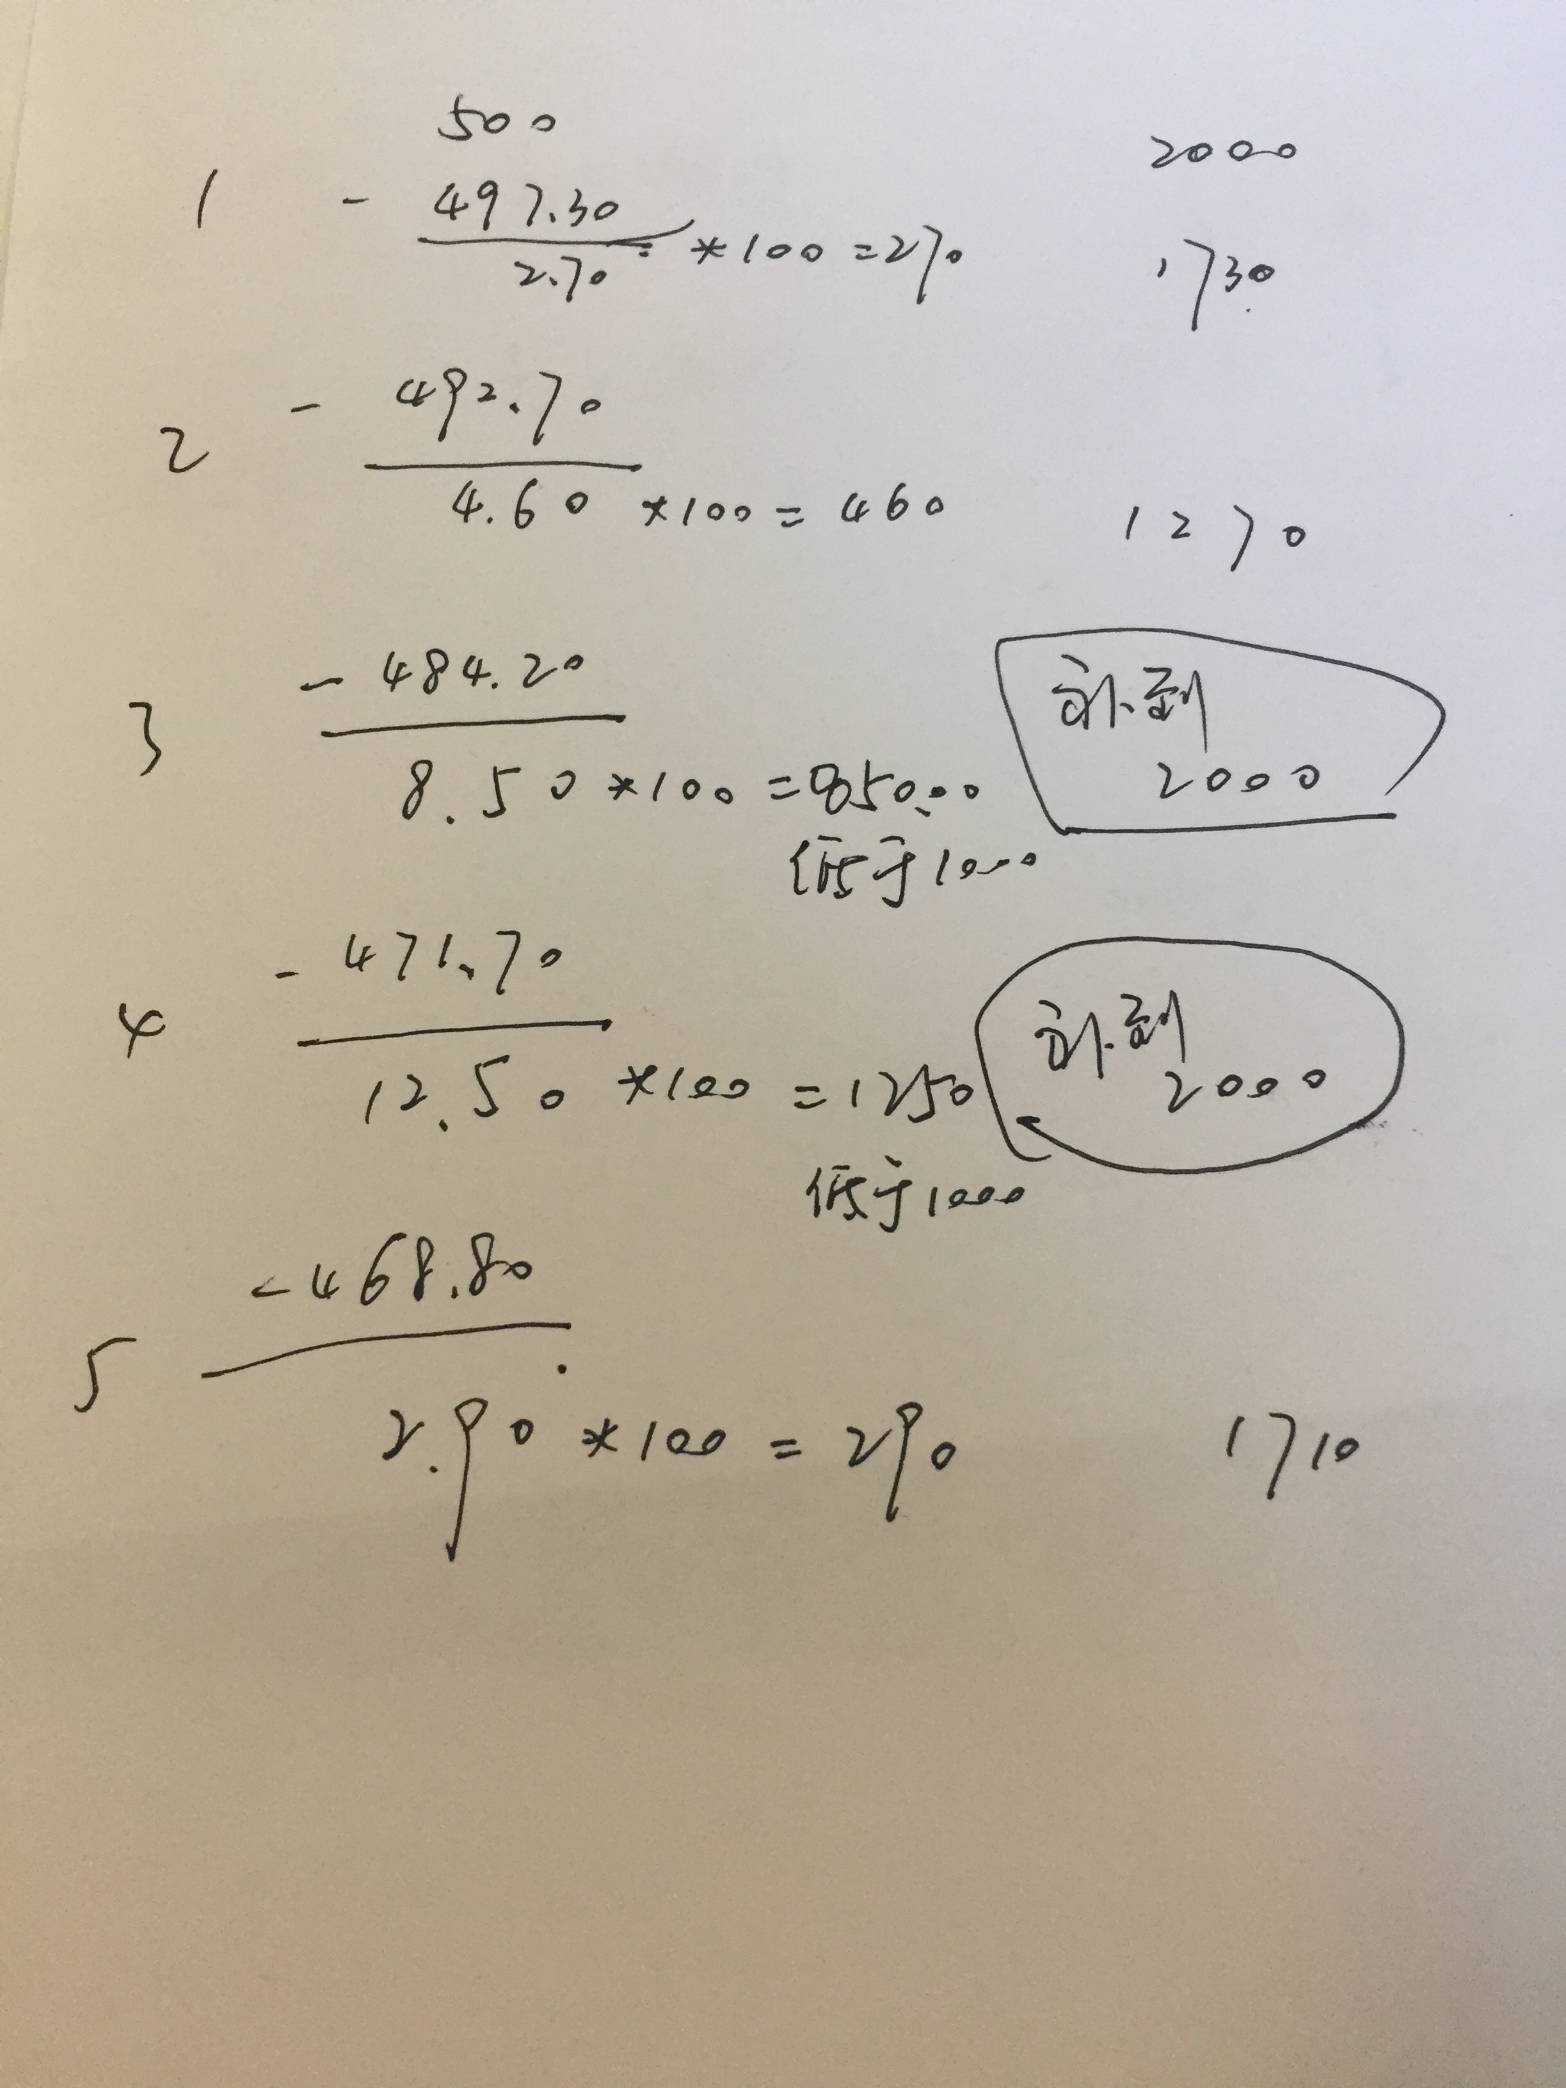 500 2000
1 - 497.30
2.70 *100 =270 1730
2 - 492.70
4.60 *100 = 460 1270
3 - 484.20 补到
8.50 *100 =850.00 2000
低于1000
4 - 471.70 补到
12.50 *100 =1250 2000
低于1000
5 -468.80
2.90 *100 = 290 1710